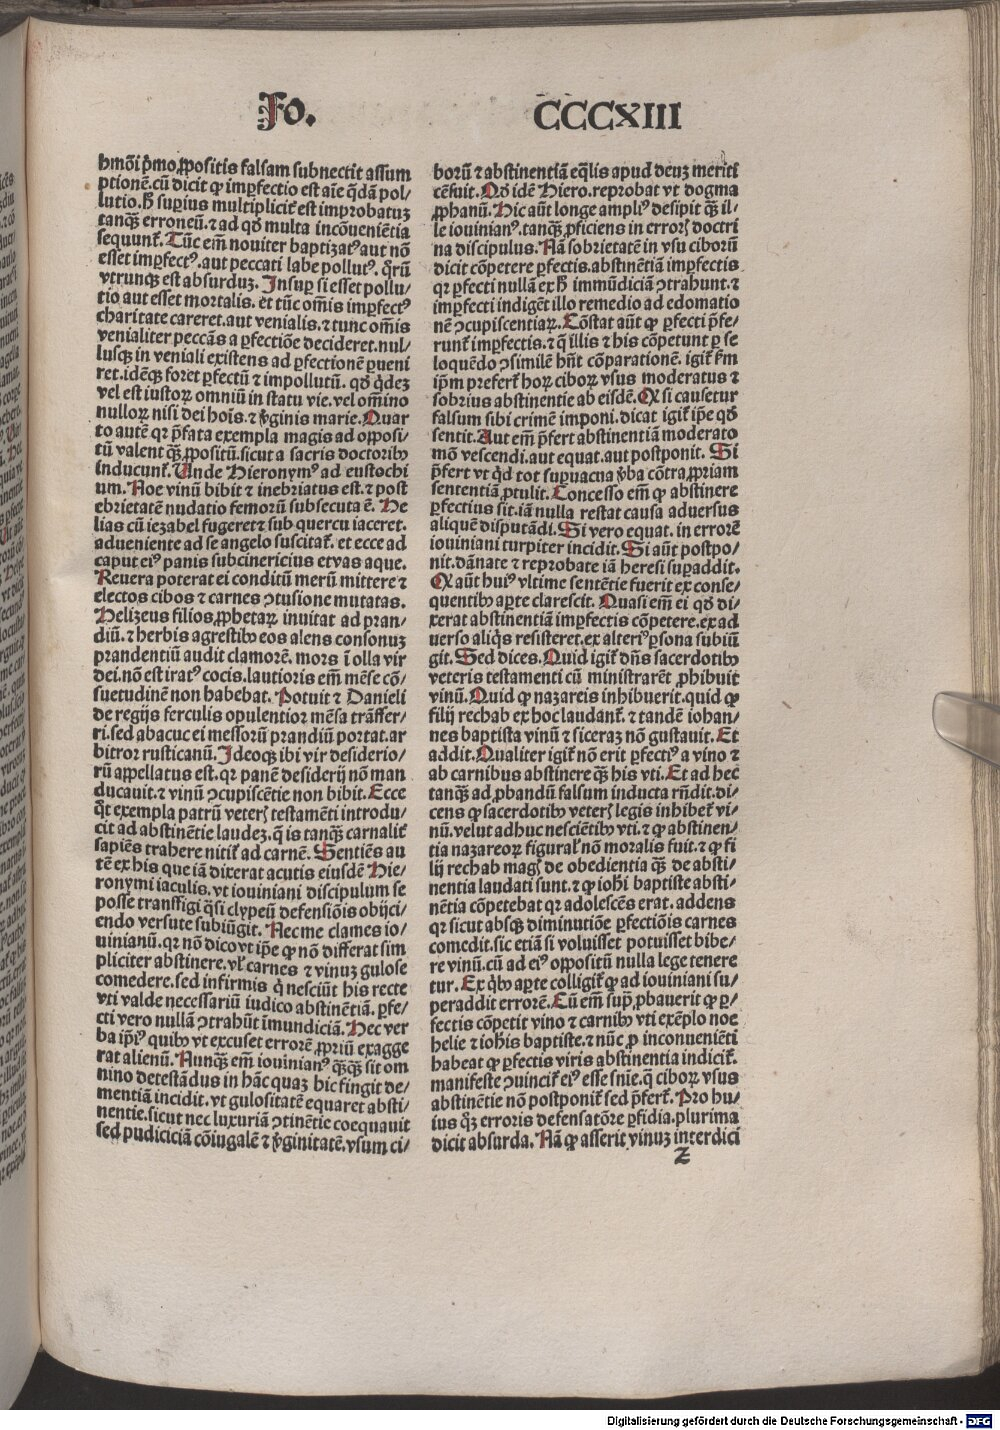 Fo. CCCXIII
hmōi p̄mo ꝓpositis falsam subnectit assum
ptionē. cū dicit ꝙ imꝑfectio est aīe q̄dā pol/
lutio. ꝙ suꝑius multiplicit̄ est improbatuꝫ
tanꝙ̄ erroneū. ⁊ ad qd̄ multa incōuenientia
sequunt̄. Tūc em̄ nouiter baptizatꝰ aut nō
esset imꝑfectꝰ. aut peccati labe pollutꝰ. qͦrū
vtrunqꝫ est absurduꝫ. Insuꝑ si esset pollu/
tio aut esset mortalis. et tūc om̄is imꝑfectꝰ
charitate careret. aut venialis. ⁊ tunc om̄is
venialiter peccās a ꝑfectiōe decideret. nul/
lusqꝫ in veniali existens ad ꝑfectionē ꝑueni
ret. idēqꝫ foret ꝑfectū ⁊ impollutū. qd̄ qͥdeꝫ
vel est iustoꝝ omniū in statu vie. vel om̄ino
nulloꝝ nisi dei hoīs. ⁊ ṽginis marie. Quar
to autē qꝛ p̄fata exempla magis ad opposi/
tū valent ꝙ̄ ꝓpositū. sicut a sacris doctoribꝰ
inducunt̄. Unde Hieronymꝰ ad eustochi
um. Noe vinū bibit ⁊ inebriatus est. ⁊ post
ebrietatē nudatio femorū subsecuta ē. He
lias cū iezabel fugeret ⁊ sub quercu iaceret.
adueniente ad se angelo suscitat̄. et ecce ad
caput eiꝰ panis subcinericius et vas aque.
Reuera poterat ei conditū merū mittere ⁊
electos cibos ⁊ carnes ↄtusione mutatas.
Helizeus filios ꝓphetaꝝ inuitat ad pran/
diū. ⁊ herbis agrestibꝰ eos alens consonuꝫ
prandentiū audit clamorē. mors ī olla vir
dei. nō est iratꝰ cocis. lautioris em̄ mēse cō/
suetudinē non habebat. Potuit ⁊ Danieli
de regijs ferculis opulentior mēsa trāffer/
ri. sed abacuc ei messorū prandiū portat. ar
bitror rusticanū. Ideoqꝫ ibi vir desiderio/
rū appellatus est. qꝛ panē desiderij nō man
ducauit. ⁊ vinū ↄcupiscētie non bibit. Ecce
qͦt exempla patrū veterꝭ testamēti introdu/
cit ad abstinētie laudeꝫ. q̄ is tanꝙ̄ carnalit̄
sapiēs trahere nitit̄ ad carnē. Sentiēs au
tē ex his que iā dixerat acutis eiusdē Hie/
ronymi iaculis. vt iouiniani discipulum se
posse transfigi q̄si clypeū defensiōis obijci/
endo versute subiūgit. Nec me clames io/
uinianū. qꝛ nō dico vt ip̄e ꝙ nō differat sim
pliciter abstinere. vl̓ carnes ⁊ vinuꝫ gulose
comedere. sed infirmis q̄ nesciūt his recte
vti valde necessariū iudico abstinētiā. ꝑfe/
cti vero nullā ↄtrahūt īmundiciā. Hec ver
ba ip̄iꝰ quibꝰ vt excuset errorē ꝓpriū exagge
rat alienū. Nunꝙ̄ em̄ iouinianꝰ ꝙ̄ꝙ̄ sit om
nino detestādus in hāc quaꝫ hic fingit de/
mentiā incidit. vt gulositatē equaret absti/
nentie. sicut nec luxuriā ↄtinētie coequauit
sed pudiciciā cōiugalē ⁊ ṽginitatē. vsum ci/
borū ⁊ abstinentiā eq̄lis apud deuꝫ meriti
cēsuit. Qd̄ idē Hiero. reprobat vt dogma
ꝓphanū. Hic aūt longe ampliꝰ desipit ꝙ̄ il/
le iouinianꝰ. tanꝙ̄ ꝓficiens in errorꝭ doctri
na discipulus. Nā sobrietatē in vsu ciborū
dicit cōpetere ꝑfectis. abstinētiā imꝑfectis
qꝛ ꝑfecti nullā ex ꝙ immūdiciā ↄtrahunt. ⁊
imꝑfecti indigēt illo remedio ad edomatio
nē ↄcupiscentiaꝝ. Cōstat aūt ꝙ ꝑfecti p̄fe/
runt̄ imꝑfectis. ⁊ q̄ illis ⁊ his cōpetunt ꝑ se
loquēdo ↄsimilē hn̄t cōparationē. igit̄ ẜm
ip̄m prefert̄ hoꝝ ciboꝝ vsus moderatus ⁊
sobrius abstinentie ab eisdē. Ꝙ si causetur
falsum sibi crimē imponi. dicat igit̄ ip̄e qd̄
sentit. Aut em̄ p̄fert abstinentiā moderato
mō vescendi. aut equat. aut postponit. Si
p̄fert vt qͥd tot suꝑuacua ṽba cōtra ꝓpriam
sententiā ꝓtulit. Concesso em̄ ꝙ abstinere
ꝑfectius sit. iā nulla restat causa aduersus
aliquē disputādi. Si vero equat. in errorē
iouiniani turpiter incidit. Si aūt postpo/
nit. dānate ⁊ reprobate iā heresi suꝑaddit.
Ꝙ aūt huiꝰ vltime sentētie fuerit ex conse/
quentibꝰ aꝑte clarescit. Quasi em̄ ei qd̄ di/
xerat abstinentiā imꝑfectis cōpetere. ex ad
uerso aliqͥs resisteret. ex alteriꝰ ꝑsona subiū
git. Sed dices. Quid igit̄ dn̄s sacerdotibꝰ
veteris testamenti cū ministrarēt ꝓhibuit
vinū. Quid ꝙ nazareis inhibuerit. quid ꝙ
filij rechab ex hoc laudant̄. ⁊ tandē iohan/
nes baptista vinū ⁊ siceraꝫ nō gustauit. Et
addit. Qualiter igit̄ nō erit ꝑfectiꝰ a vino ⁊
ab carnibus abstinere ꝙ̄ his vti. Et ad hec
tanꝙ̄ ad ꝓbandū falsum inducta rn̄dit. di/
cens ꝙ sacerdotibꝰ veterꝭ legis inhibet̄ vi/
nū. velut adhuc nesciētibꝰ vti. ⁊ ꝙ abstinen/
tia nazareoꝝ figural̓ nō moralis fuit. ⁊ ꝙ fi
lij rechab magꝭ de obedientia ꝙ̄ de absti/
nentia laudati sunt. ⁊ ꝙ ioh̄i baptiste absti/
nētia cōpetebat qꝛ adolescēs erat. addens
qꝛ sicut absqꝫ diminutiōe ꝑfectiōis carnes
comedit. sic etiā si voluisset potuisset bibe/
re vinū. cū ad eiꝰ oppositū nulla lege tenere
tur. Ex qͥbꝰ aꝑte colligit̄ ꝙ ad iouiniani su/
peraddit errorē. Cū em̄ supͣ ꝓbauerit ꝙ ꝑ/
fectis cōpetit vino ⁊ carnibꝰ vti exēplo noe
helie ⁊ ioh̄is baptiste. ⁊ nūc ꝓ inconueniēti
habeat ꝙ ꝑfectis viris abstinentia indicit̄.
manifeste ↄuincit̄ eiꝰ esse sn̄ie. q̄ ciboꝝ vsus
abstinētie nō postponit̄ sed p̄fert̄. Pro hu/
ius q̄ꝫ erroris defensatōre ꝑfidia. plurima
dicit absurda. Nā ꝙ asserit vinuꝫ interdici
z
Digitalisierung gefördert durch die Deutsche Forschungsgemeinschaft - DFG